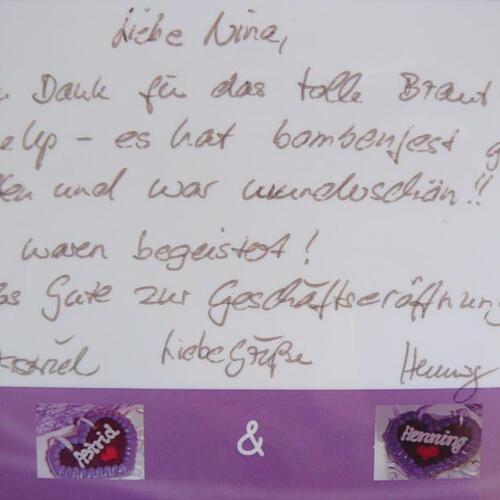 Liebe Nina,
n Dank für das tolle Braut
e Up - es hat bombenfest g
en und war wunderschön!!
waren begeistert!
es Gute zur Geschäftseröffnung
Astrid Liebe Grüße Henning
Astrid & Henning